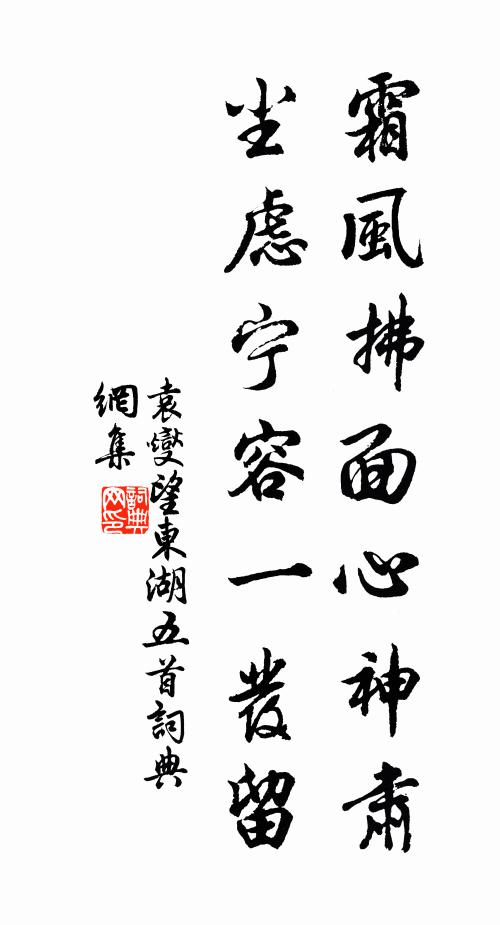 霜風拂面心神肅
尘慮宁容一發留
袁燮望東湖五首詞典
網集
詞典
网印